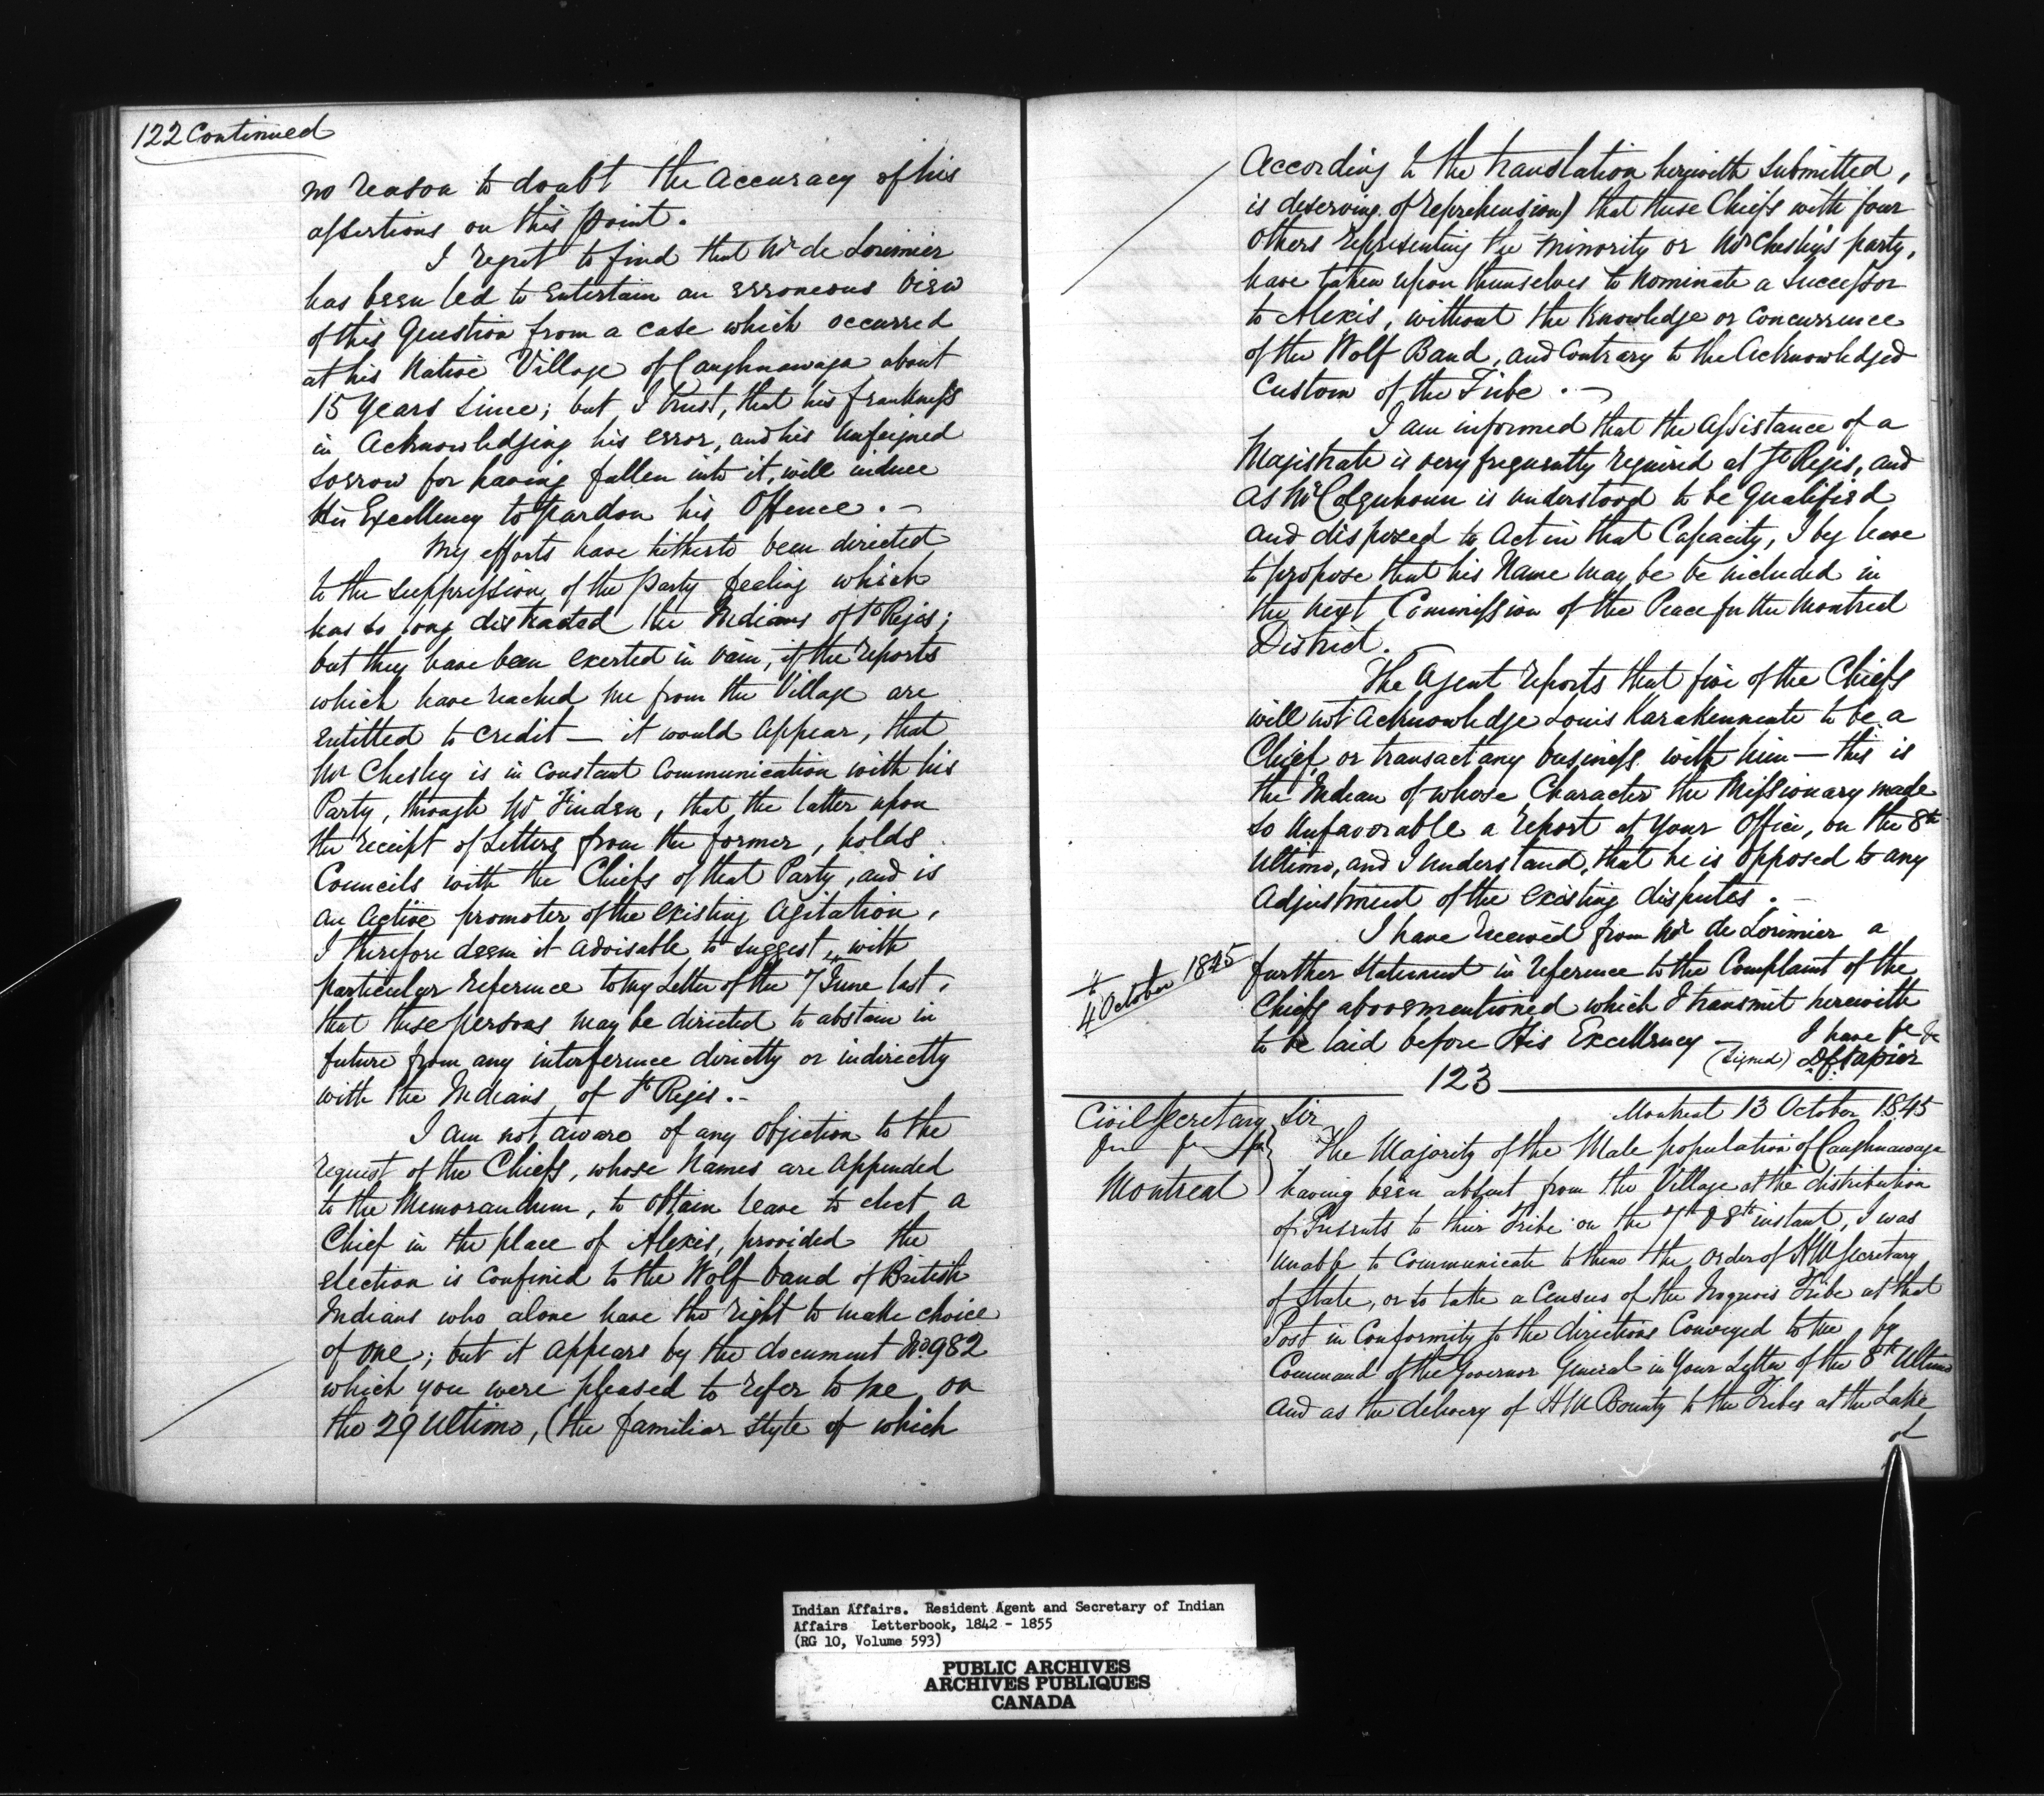 122 Continued
no reason to doubt the accuracy of his
assertions on this point.
I regret to find that Mr de Lorimier
has been led to entertain an erroneous view
of this Question from a case which occurred
at his Native Village of Caughnawaga about
15 Years since; but I trust, that his frankness
in Acknowledging his error, and his unfeigned
sorrow for having fallen into it, will induce
His Excellency to pardon his Offence. -
My efforts have hitherto been directed
to the suppression of the party feeling which
has so long distracted the Indians of St Regis;
but they have been exerted in vain, if the reports
which have reached me from the Village are
entitled to credit — it would appear, that
Mr Chesley is in constant communication with his
Party, through Mr Finden, that the latter upon
the receipt of Letters from the former, holds
Councils with the Chiefs of that Party, and is
an active promoter of the existing agitation,
I therefore deem it advisable to suggest, with
particular reference to my Letter of the 7 June last,
that these persons may be directed to abstain in
future from any interference directly or indirectly
with the Indians of St Regis. -
I am not aware of any objection to the
request of the Chiefs, whose Names are appended
to the Memorandum, to obtain leave to elect a
Chief in the place of Alexis, provided the
election is confined to the Wolf band of British
Indians who alone have the right to make choice
of one; but it appears by the document No 982
which you were pleased to refer to me on
the 29 Ultimo, (the familiar style of which
According to the translation herewith submitted,
is deserving of reprehension) that these Chiefs with four
others representing the minority or Mr Chesley's party,
have taken upon themselves to nominate a successor
to Alexis, without the Knowledge or concurrence
of the Wolf Band, and contrary to the Acknowledged
Custom of the Tribe. -
I am informed that the assistance of a
Magistrate is very frequently required at St Regis, and
as Mr Colquhoun is understood to be qualified
and disposed to act in that Capacity, I beg leave
to propose that his Name may be be included in
the next Commission of the Peace for the Montreal
District.
The Agent reports that five of the Chiefs
will not acknowledge Louis Karakennente to be a
Chief, or transact any business with him — this is
the Indian of whose Character the Missionary made
so unfavorable a report at your Office, on the 8th
Ultimo, and I understand, that he is opposed to any
adjustment of the existing disputes. -
I have received from Mr de Lorimier a
4 October 1845
further statement in reference to the Complaint of the
Chiefs abovementioned which I transmit herewith
to be laid before His Excellency -
I have &c &c
(Signed) D C Napier
123
Montreal 13 October 1845
Civil Secretary
Montreal
Sir
The Majority of the Male population of Caughnawaga
having been absent from the Village at the distribution
of Presents to their Tribe on the 7th & 8th instant, I was
unable to communicate to them the order of HM Secretary
of State, or to take a Census of the Iroquois Tribe at that
Post in Conformity to the directions Conveyed to me, by
Command of the Governor General in Your Letter of the 8th Ultimo
and as the delivery of HM Bounty to the Tribes at the Lake
of
Indian Affairs. Resident Agent and Secretary of Indian
Affairs Letterbook, 1842 - 1855
(RG 10, Volume 593)
PUBLIC ARCHIVES
ARCHIVES PUBLIQUES
CANADA